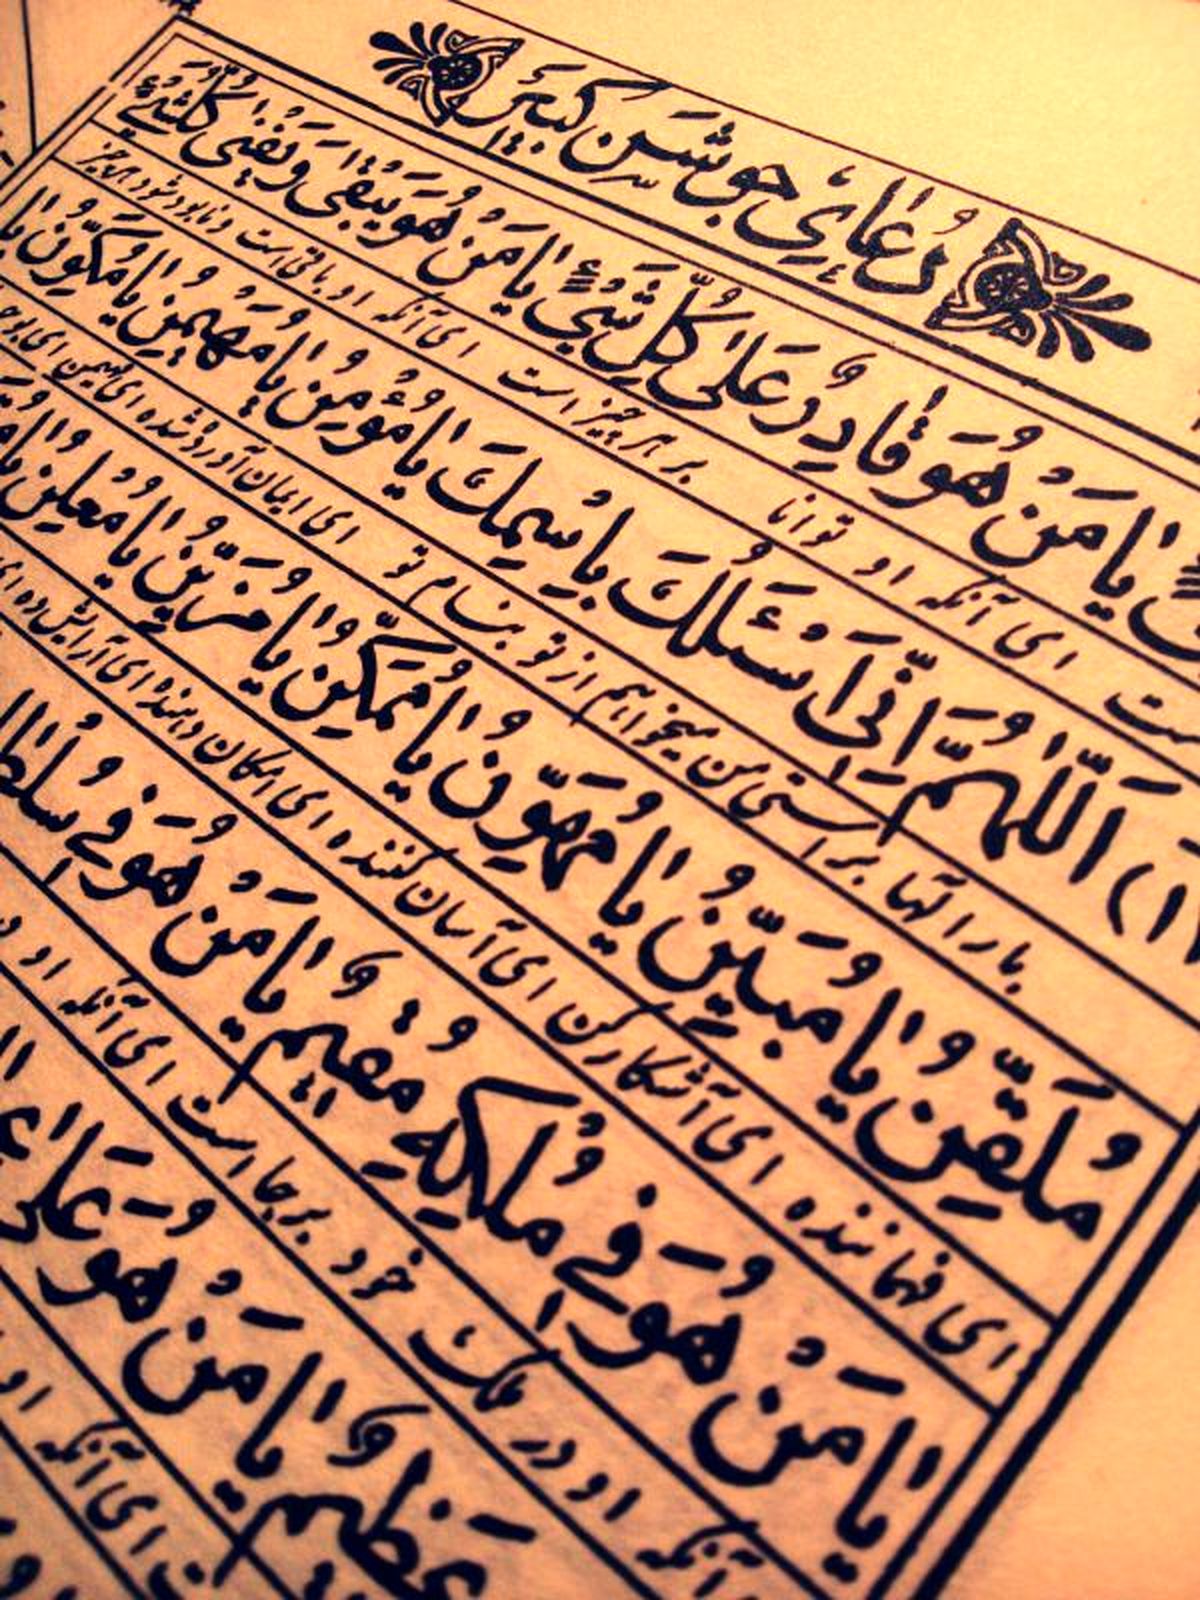 دُعَایِ جَوشَنِ کَبیر
یا مَنْ هُوَ قادِرٌ عَلیٰ کُلِّ شَیْءٍ یا مَنْ هُوَ یَبْقیٰ وَ یَفْنیٰ کُلُّ شَیْءٍ
ست ای آنکه او توانا بر هر چیز است ای آنکه او باقی است و نابود شود هر چیز
اَللّٰهُمَّ اِنّی اَسْئَلُکَ بِاسْمِکَ یا مُؤْمِنُ یا مُهَیْمِنُ یا مُکَوِّنُ یا
بار الها براستی من میخواهم از تو بنام تو ای ایمان آورده شده ای مهیمن
مُلَقِّنُ یا مُبَیِّنُ یا مُهَوِّنُ یا مُمَکِّنُ یا مُزَیِّنُ یا مُعْلِنُ یا
ای فهماننده ای آشکار کن ای آسان کننده ای امکان دهنده ای آرایش ده
یا مَنْ هُوَ فی مُلْکِهِ مُقیمٌ یا مَنْ هُوَ فی
آنکه او در ملک خود برجا است ای آنکه او
عَظیمٌ یا مَنْ هُوَ عَلیٰ
ای آنکه او